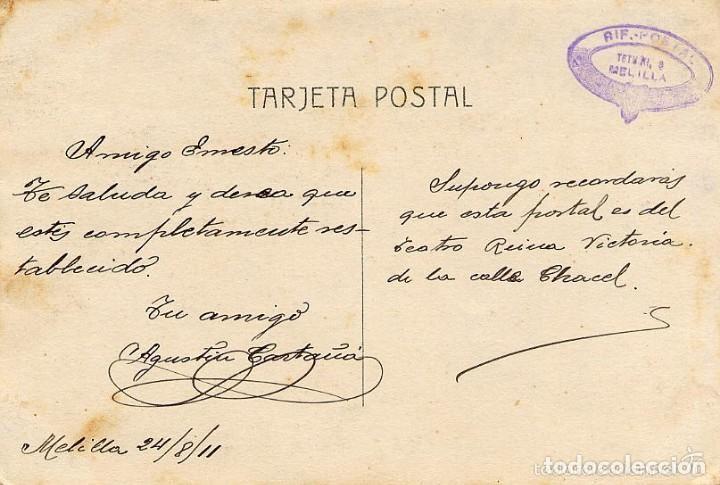 RIF.-POSTAL
MELILLA
TARJETA POSTAL
Amigo Ernesto:
Te saluda y desea que
estés completamente res-
tablecido.
Tu amigo
Agustín
Melilla 24/8/11
Supongo recordarás
que esta postal es del
teatro Reina Victoria.
de la calle Chacel.
todocoleccion